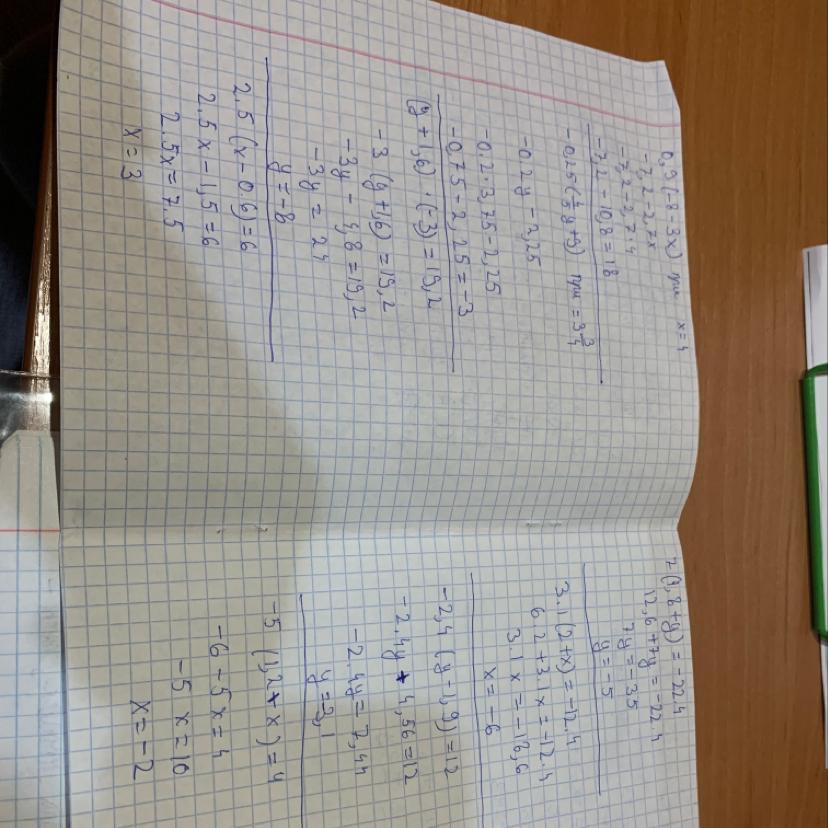 0,9(-8-3x) при x=4
-7,2-2,7x
-7,2-2,7·4
-7,2-10,8=18
-0,25(4/5y+9) при =3 3/4
-0,2y-2,25
-0,2·3,75-2,25
-0,75-2,25=-3
(y+1,6)·(-3)=19,2
-3(y+1,6)=19,2
-3y-4,8=19,2
-3y=24
y=-8
2,5(x-0.6)=6
2,5x-1,5=6
2.5x=7.5
x=3
7(1,8+y)=-22.4
12,6+7y=-22.4
7y=-35
y=-5
3.1(2+x)=-12.4
6,2+3.1x=-12.4
3.1x=-18,6
x=-6
-2,4(y-1,9)=12
-2,4y+4,56=12
-2.4y=7,44
y=3,1
-5(1,2+x)=4
-6-5x=4
-5x=10
x=-2